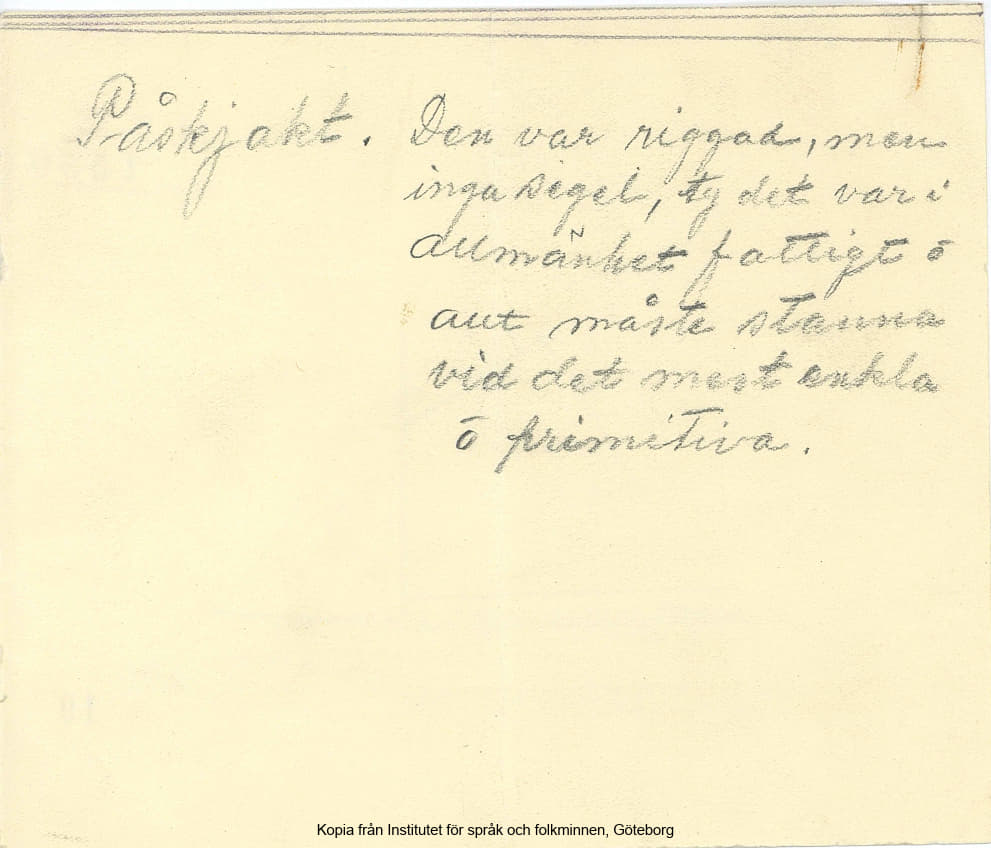 Påskjakt. Den var riggad, men
inga segel, ty det var i
allmänhet fattigt ō
allt måste stanna
vid det mest enkla
ō primitiva.
Kopia från Institutet för språk och folkminnen, Göteborg